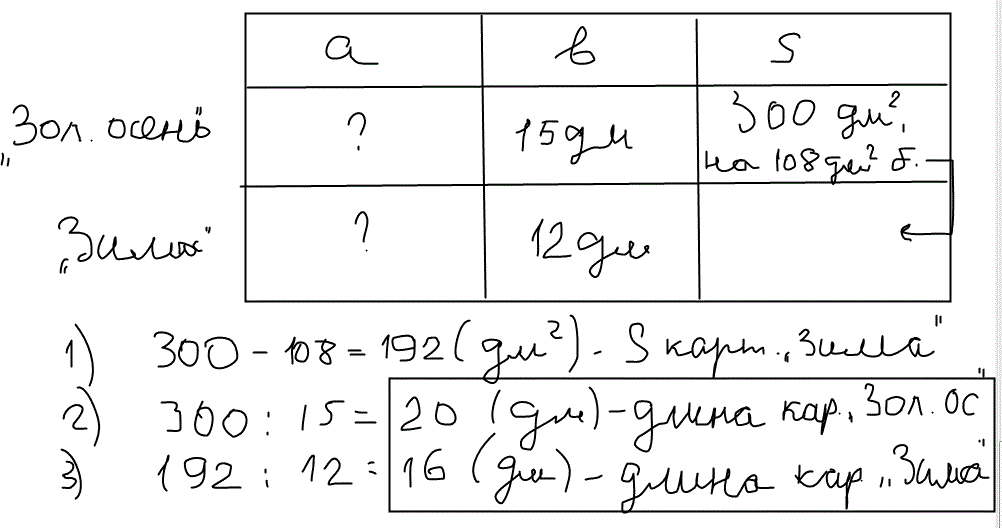 a в S
„Зол. осень" ? 15 дм 300 дм²,
на 108 дм² б.
„Зима" ? 12 дм
1) 300 - 108 = 192 (дм²) - S карт. „Зима"
2) 300 : 15 = 20 (дм) - длина кар. „Зол. ос"
3) 192 : 12 = 16 (дм) - длина кар „Зима"